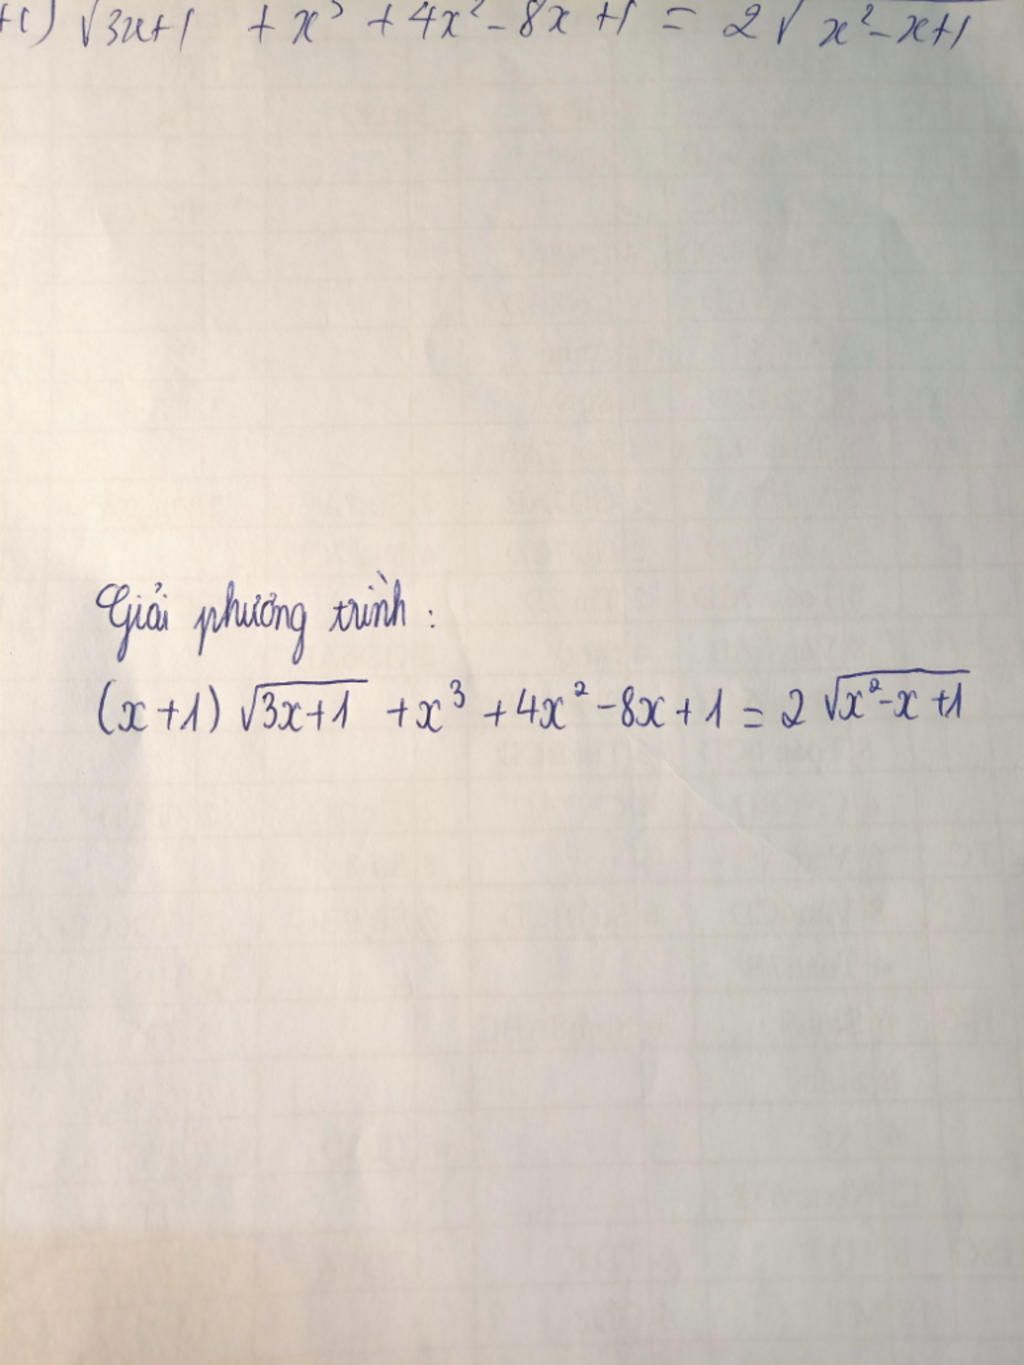 +1) √3x+1 + x³ + 4x² - 8x + 1 = 2√x² - x + 1
Giải phương trình :
(x+1) √3x+1 + x³ + 4x² - 8x + 1 = 2 √x² - x + 1